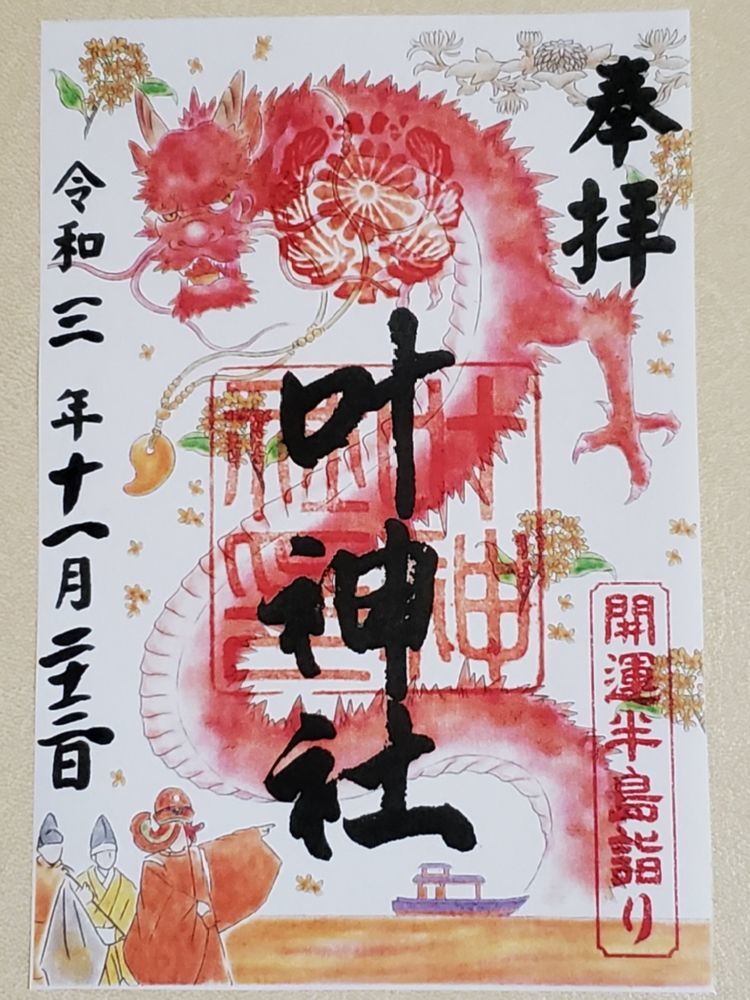 奉拝
叶神社
令和三年十一月
開運半島詣り